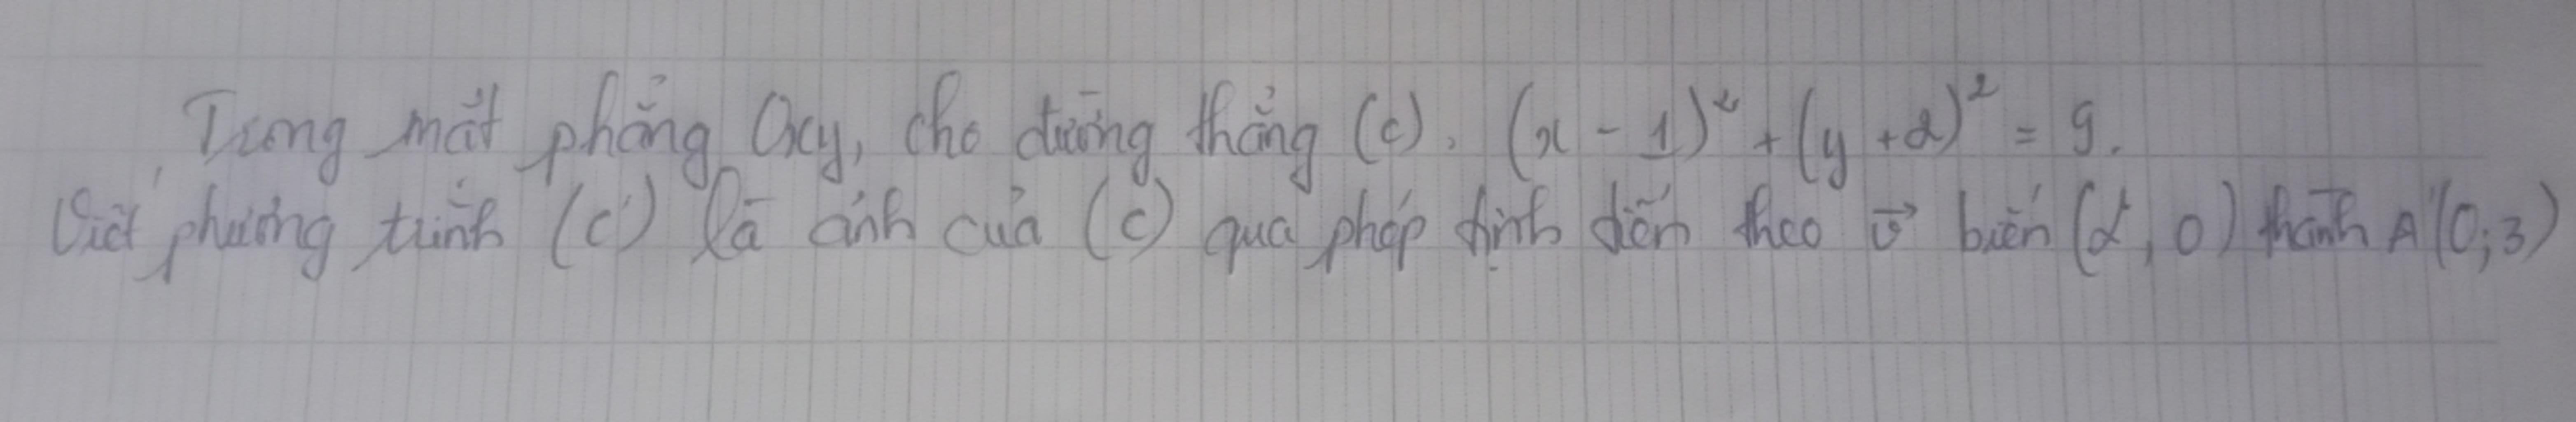 Trong mặt phẳng Oxy, cho đường thẳng (c). (x - 1)² + (y + 2)² = 9.
Viết phương trình (c') là ảnh của (c) qua phép tịnh tiến theo v⃗ biến (2, 0) thành A'(0; 3)